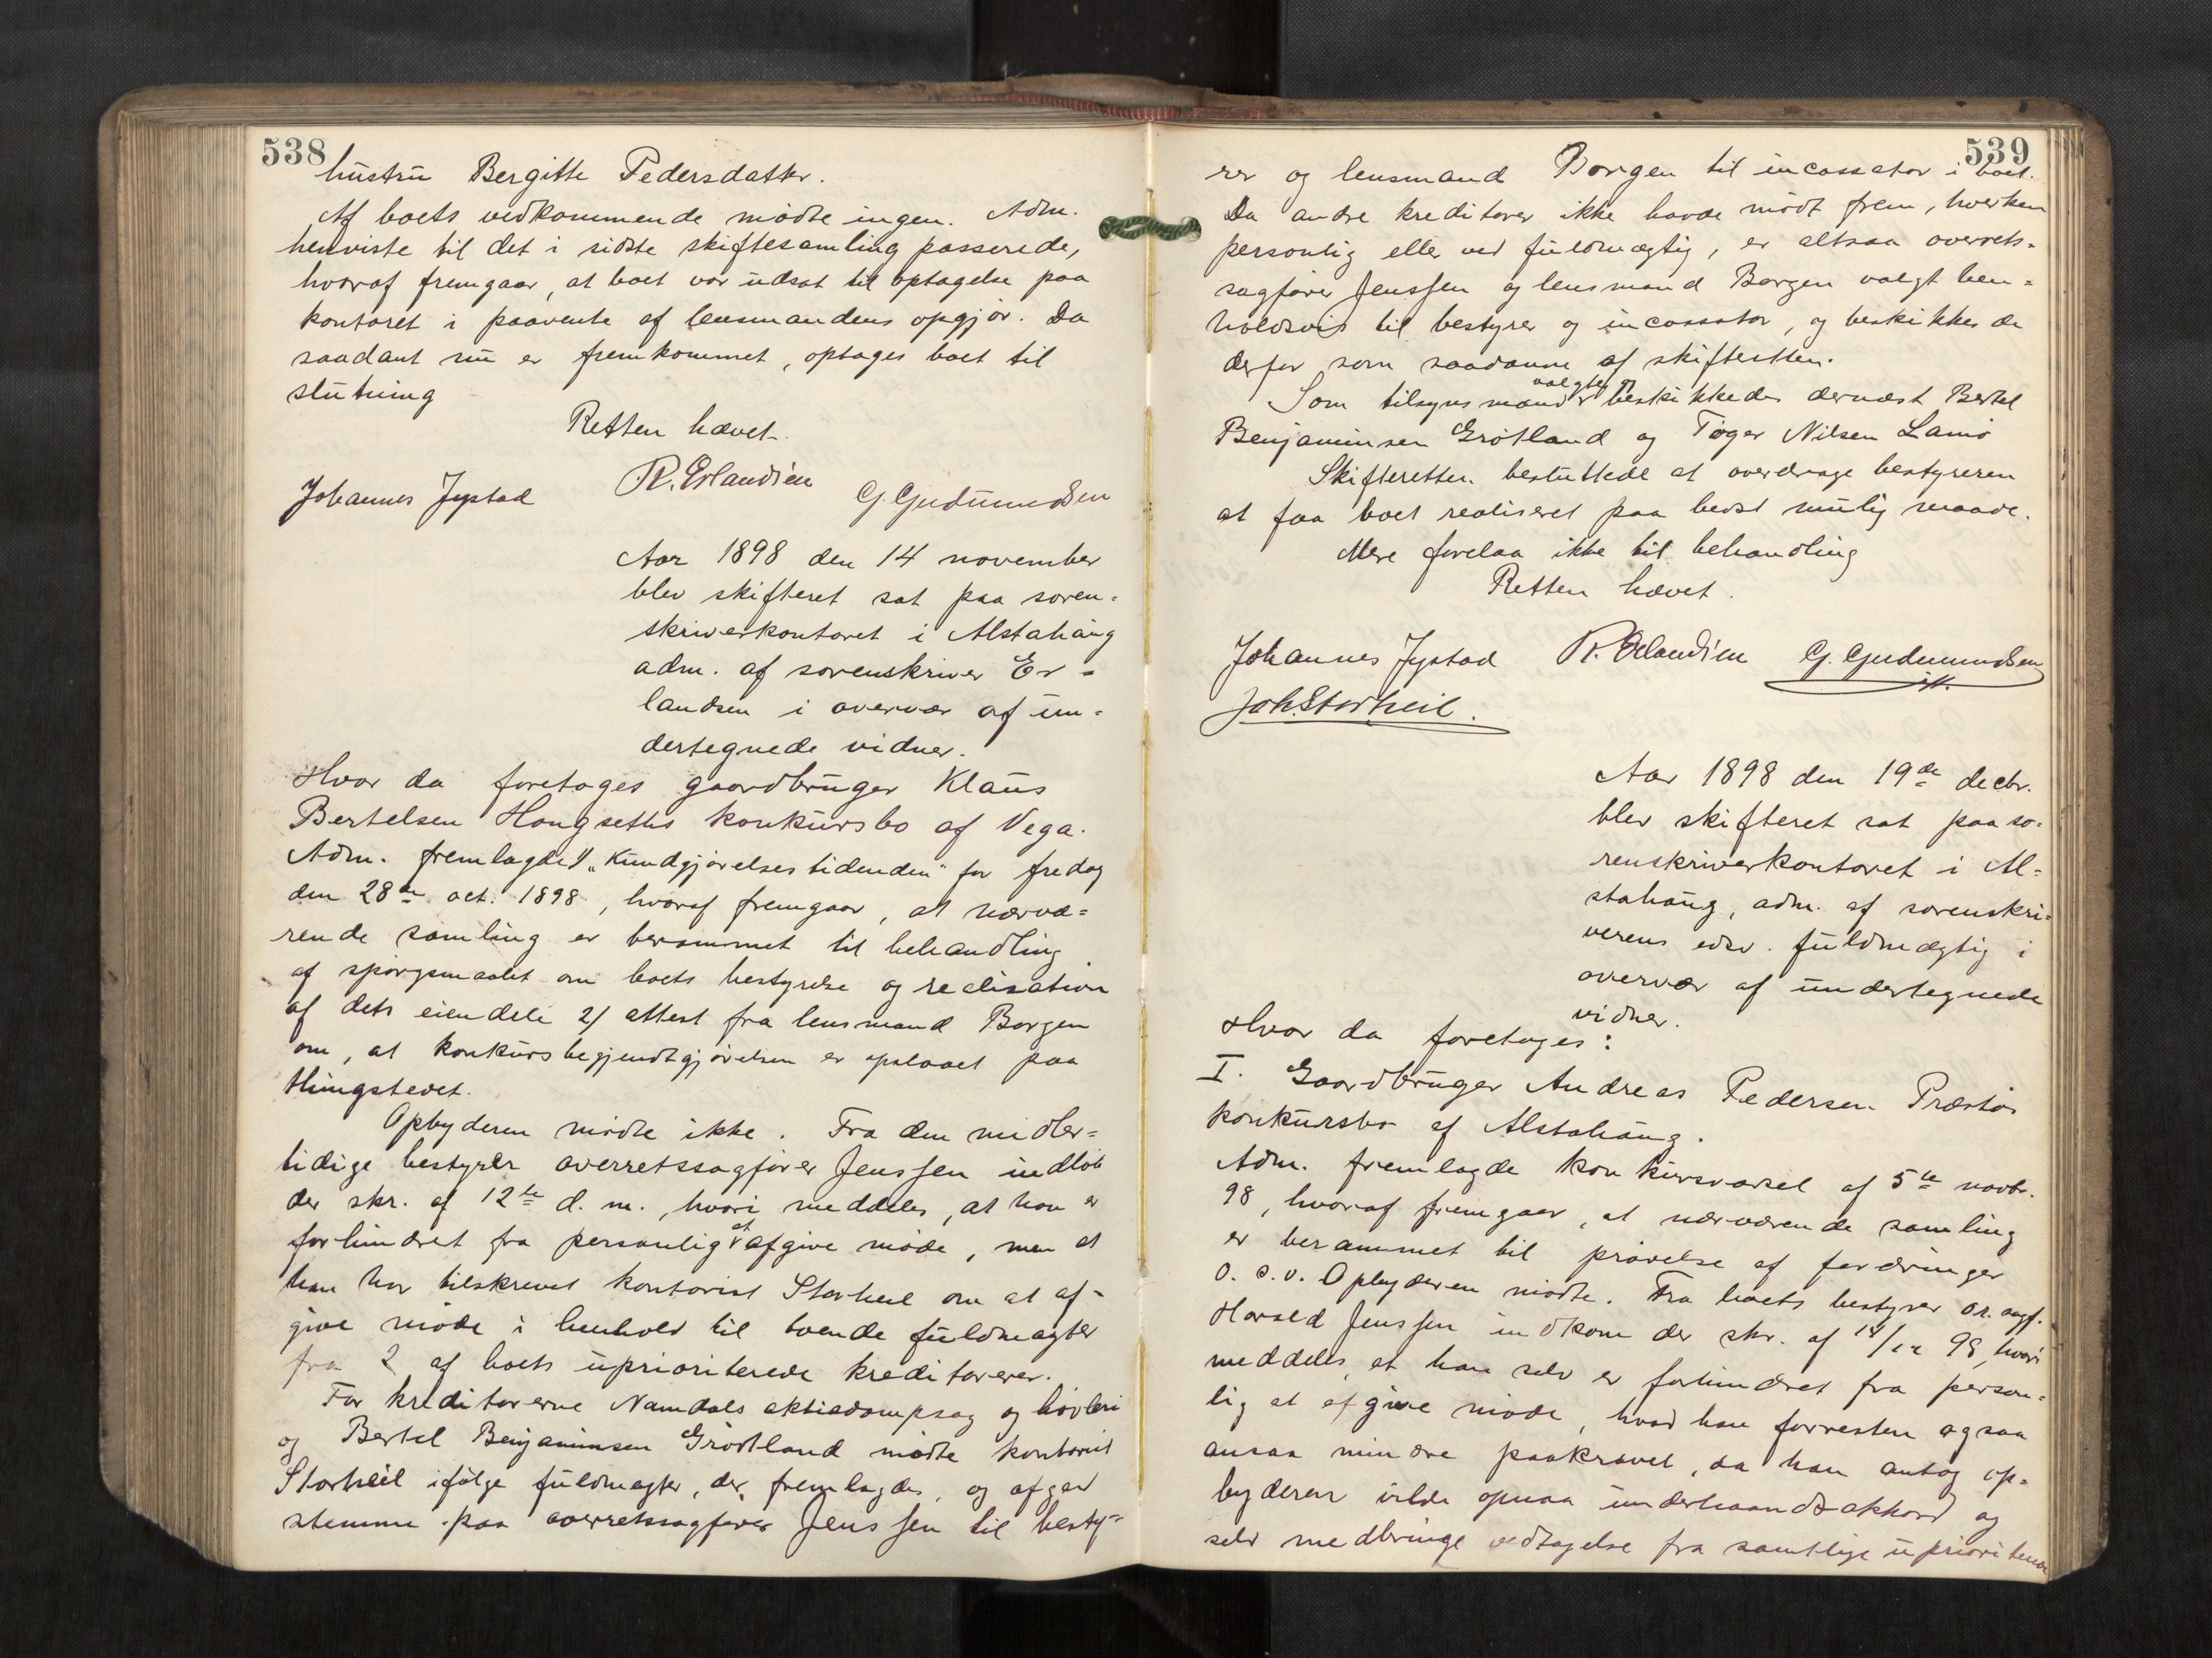 538
hustru Bergitte Pedersdatter.
Af boets vedkommende mødte ingen. Adm.
henviste til det i sidste skiftesamling passerede,
hvoraf fremgaar, at boet var udsat til optagelse paa
kontoret i paavente af lensmandens opgjør. Da
saadant nu er fremkommet, optages boet til
slutning
Retten hævet.
Johannes Jystad R. Erlandsen G. Gudmundsen
Aar 1898 den 14 november
blev skifteret sat paa soren-
skriverkontoret i Alstahaug
adm. af sorenskriver Er-
landsen i overvær af un-
dertegnede vidner.
Hvor da foretages gaardbruger Klaus
Bertelsen Hongseths konkursbo af Vega.
Adm. fremlagde 1/ „Kundgjørelsestidenden" for fredag
den 28de oct. 1898, hvoraf fremgaar, at nærvæ-
rende samling er berammet til behandling
af spørgsmaalet om boets bestyrelse og realisation
af dets eiendele 2/ attest fra lensmand Borgen
om, at konkursbegjendtgjørelsen er opslaaet paa
thingstedet.
Opbyderen mødte ikke. Fra den midler-
tidige bestyrer overretssagfører Jenssen indløb
der skr. af 12te d. m., hvori meddeles, at han er
forhindret fra personlig at afgive møde, men at
han har tilskrevet kontorist Storheil om at af-
give møde i henhold til tvende fuldmagter
fra 2 af boets uprioriterede kreditorerer.
For kreditorerne Namdals aktiedampsag og høvleri
og Bertel Benjaminsen Grøtland mødte kontorist
Storheil ifølge fuldmagter, der fremlagdes, og afgav
stemme paa overretssagfører Jenssen til besty-
539
rer og lensmand Borgen til incassator i boet.
Da andre kreditorer ikke havde mødt frem, hverken
personlig eller ved fuldmægtig, er altsaa overrets-
sagfører Jenssen og lensmand Borgen valgt hen-
holdsvis til bestyrer og incassator, og beskikkes de
derfor som saadanne af skifteretten.
Som tilsynsmænd valgtes og beskikkedes dernæst Bertel
Benjaminsen Grøtland og Tøger Nilsen Lamø
Skifteretten besluttede at overdrage bestyreren
at faa boet realiseret paa bedst mulig maade.
Mere forelaa ikke til behandling
Retten hævet.
Johannes Jystad R. Erlandsen G. Gudmundsen
Joh. Storheil.
Aar 1898 den 19de decbr.
blev skifteret sat paa so-
renskriverkontoret i Al-
stahaug, adm. af sorenskri-
verens edsv. fuldmægtig i
overvær af undertegnede
vidner.
Hvor da foretages:
I. Gaardbruger Andreas Pedersen Præstøs
konkursbo af Alstahaug.
Adm. fremlagde konkursvarsel af 5te novbr.
98, hvoraf fremgaar, at nærværende samling
er berammet til prøvelse af fordringer
o. s. v. Opbyderen mødte. Fra boets bestyrer o.r. sagf.
Harald Jenssen indkom der skr. af 14/12 98, hvori
meddeles, at han selv er forhindret fra person-
lig at afgive møde, hvad han forresten ogsaa
ansaa mindre paakrævet, da han antog op-
byderen vilde opnaa underhaandsakkord og
selv medbringe vedtagelse fra samtlige uprioriterede